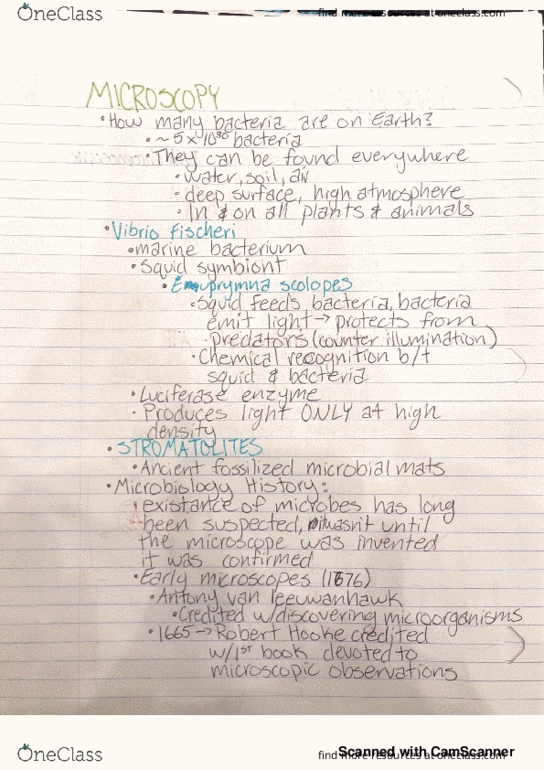 OneClass
find more resources at oneclass.com
MICROSCOPY
• How many bacteria are on Earth?
• ~5x10³⁰ bacteria
• They can be found everywhere
• water, soil, air
• deep surface, high atmosphere
• In & on all plants & animals
• Vibrio fischeri
• marine bacterium
• Squid symbiont
• Euprymna scolopes
• Squid feeds bacteria, bacteria
emit light → protects from
predators (counter illumination)
• Chemical recognition b/t
squid & bacteria
• Luciferase enzyme
• Produces light ONLY at high
density
• STROMATOLITES
• Ancient fossilized microbial mats
• Microbiology History:
existance of microbes has long
been suspected, wasn't until
the microscope was invented
it was confirmed
• Early microscopes (1676)
• Antony van leeuwanhawk
• Credited w/discovering microorganisms
• 1665 → Robert Hooke credited
w/1st book devoted to
microscopic observations
OneClass
find more resources at oneclass.com
Scanned with CamScanner